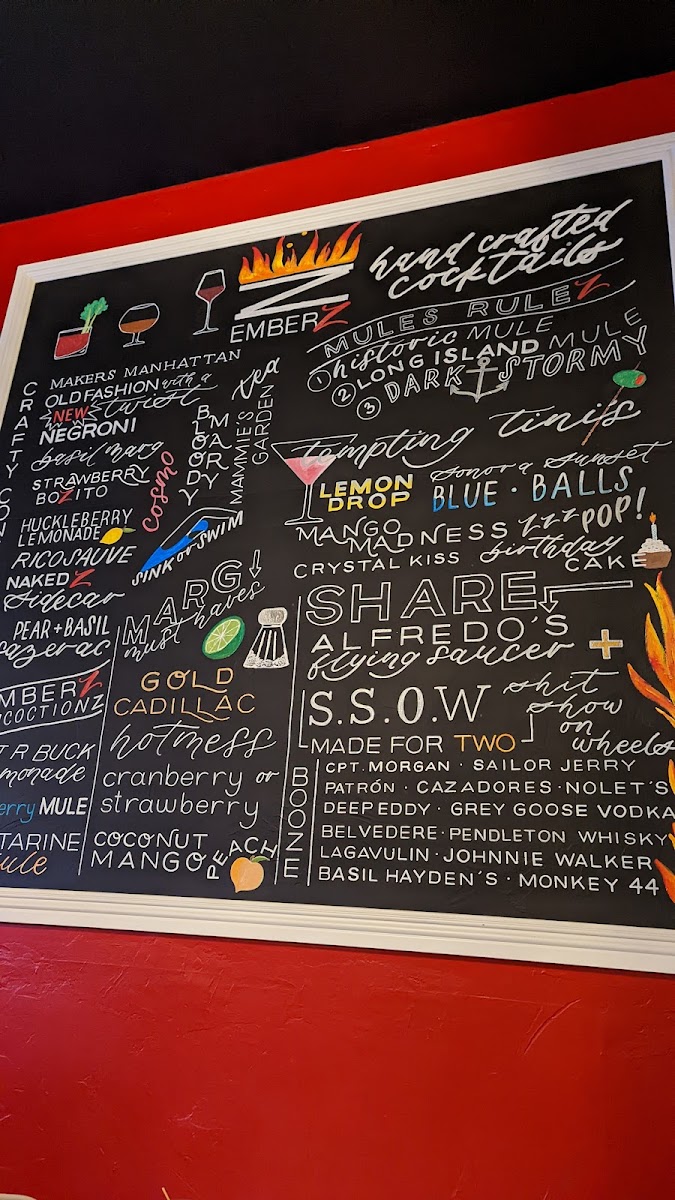 EMBERZ
hand crafted
cocktails
MULES RULEZ
1 historic MULE
2 LONG ISLAND MULE
3 DARK STORMY
CRAFTY CON
MAKERS MANHATTAN
OLD FASHION with a
NEW twist
NEGRONI
basil marg
STRAWBERRY
BOZITO
HUCKLEBERRY
LEMONADE
RICO SAUVE
NAKED Z
Sidecar
PEAR + BASIL
Sazerac
cosmo
BLOODY
MARY
MAMMIE'S
GARDEN
tea
SINK OR SWIM
tempting tinis
LEMON
DROP
Sonora Sunset
BLUE · BALLS
MANGO
MADNESS
zzz POP!
CRYSTAL KISS
birthday
CAKE
MBERZ
COCTIONZ
T R BUCK
monade
erry MULE
TARINE
ule
MARG
must haves
GOLD
CADILLAC
hotness
cranberry or
strawberry
COCONUT
MANGO
PEACH
SHARE
ALFREDO'S
flying saucer +
S.S.O.W
shit
show
on
wheels
MADE FOR TWO
BOOZE
CPT. MORGAN · SAILOR JERRY
PATRÓN · CAZADORES · NOLET'S
DEEP EDDY · GREY GOOSE VODKA
BELVEDERE · PENDLETON WHISKY
LAGAVULIN · JOHNNIE WALKER
BASIL HAYDEN'S · MONKEY 44